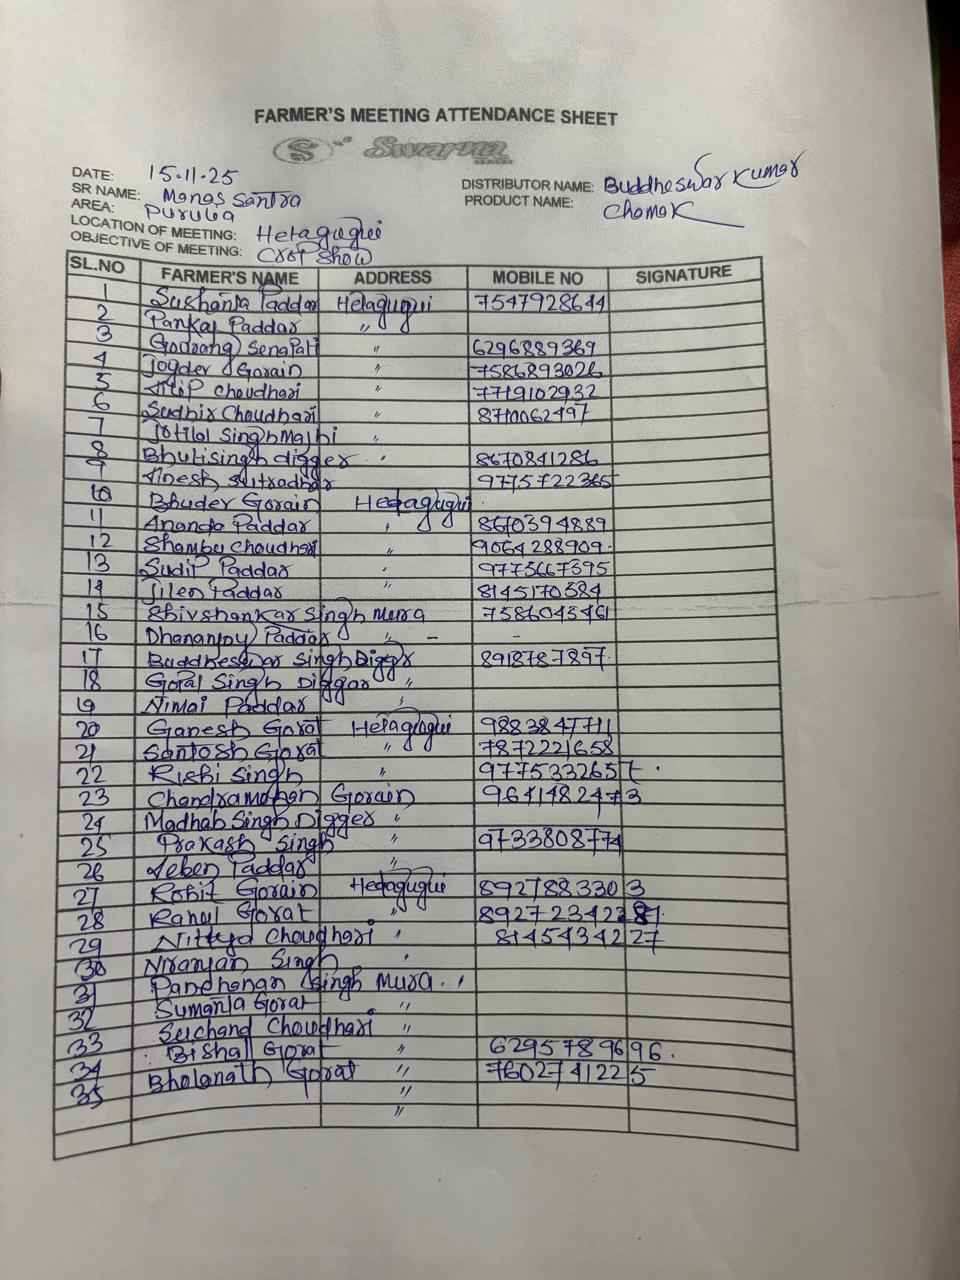 FARMER'S MEETING ATTENDANCE SHEET
S Swarna
DATE: 15.11.25
SR NAME: Manas Santra
AREA: Purulia
LOCATION OF MEETING: Hetagugui
OBJECTIVE OF MEETING: Crop Show
DISTRIBUTOR NAME: Buddheswar Kumar
PRODUCT NAME: Chamak
SL.NO FARMER'S NAME ADDRESS MOBILE NO SIGNATURE
1 Sushanta Paddar Hetagugui 7547928644
2 Pankaj Paddar "
3 Gourang Senapati " 6296889369
4 Joydev Gorain " 7586893026
5 Dilip Choudhari " 7719102932
6 Sudhir Choudhari " 8710062497
7 Jotilal Singh Majhi "
8 Bhutisingh digger " 8670841286
9 Dinesh Sutradhar 9775722365
10 Bhuder Gorain Hetagugui
11 Ananda Paddar " 8670394889
12 Shambu Choudhari " 9064288909
13 Sudip Paddar " 9775667395
14 Jilen Paddar " 8145170584
15 Shivshankar Singh Mura 7586045461
16 Dhananjoy Paddar " - -
17 Buddheswar Singh Diggr 8918787897
18 Gopal Singh Diggar "
19 Nimai Paddar "
20 Ganesh Gorat Hetagugui 9883847711
21 Santosh Gorat " 7872221658
22 Rishi Singh " 9775332657
23 Chandramohan Gorain 9641482473
24 Madhab Singh Digger "
25 Prakash Singh " 9733808774
26 Deben Paddar "
27 Rohit Gorain Hetagugui 8927883303
28 Rahul Gorat " 8927234228
29 Nittya Choudhari " 8145434227
30 Niranjan Singh "
31 Panchanan Singh Mura "
32 Sumanta Gorat "
33 Seichand Choudhari "
34 Bishall Gorat " 6295789696
35 Bholanath Gorat " 7602741225
"
"